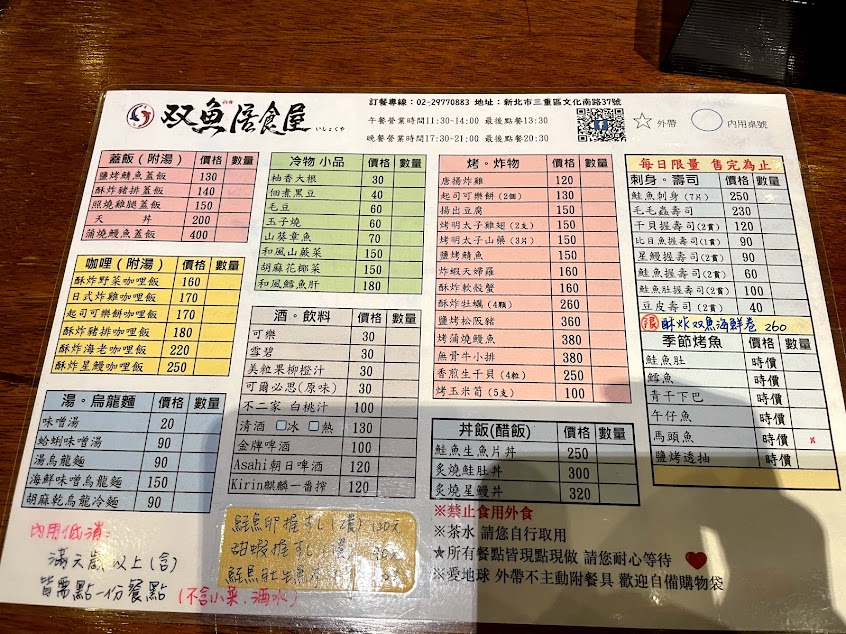 双魚居食屋
いしょくや
訂餐專線：02-29770883 地址：新北市三重區文化南路37號
午餐營業時間11:30-14:00 最後點餐13:30
晚餐營業時間17:30-21:00 最後點餐20:30
外帶
內用桌號
蓋飯(附湯) 價格 數量
鹽烤鯖魚蓋飯 130
酥炸豬排蓋飯 140
照燒雞腿蓋飯 150
天 丼 200
蒲燒鰻魚蓋飯 400
咖哩(附湯) 價格 數量
酥炸野菜咖哩飯 160
日式炸雞咖哩飯 170
起司可樂餅咖哩飯 170
酥炸豬排咖哩飯 180
酥炸海老咖哩飯 220
酥炸星鰻咖哩飯 250
湯。烏龍麵 價格 數量
味噌湯 20
蛤蜊味噌湯 90
湯烏龍麵 90
海鮮味噌烏龍麵 150
胡麻乾烏龍冷麵 90
冷物 小品 價格 數量
柚香大根 30
佃煮黑豆 40
毛豆 60
玉子燒 60
山葵章魚 70
和風山蕨菜 150
胡麻花椰菜 150
和風鱈魚肝 180
酒。飲料 價格 數量
可樂 30
雪碧 30
美粒果柳橙汁 30
可爾必思(原味) 30
不二家 白桃汁 100
清酒 冰 熱 130
金牌啤酒 100
Asahi朝日啤酒 120
Kirin麒麟一番搾 120
烤。炸物 價格 數量
唐揚炸雞 120
起司可樂餅(2個) 130
揚出豆腐 150
烤明太子雞翅(2支) 150
烤明太子山藥(3片) 150
鹽烤鯖魚 150
炸蝦天婦羅 160
酥炸軟殼蟹 160
酥炸牡蠣(4顆) 260
鹽烤松阪豬 360
烤蒲燒鰻魚 380
無骨牛小排 380
香煎生干貝(4粒) 250
烤玉米筍(5支) 100
丼飯(醋飯) 價格 數量
鮭魚生魚片丼 250
炙燒鮭肚丼 300
炙燒星鰻丼 320
每日限量 售完為止
刺身。壽司 價格 數量
鮭魚刺身(7片) 250
毛毛蟲壽司 230
干貝握壽司(2貫) 120
比目魚握壽司(1貫) 90
星鰻握壽司(2貫) 90
鮭魚握壽司(2貫) 60
鮭魚肚握壽司(2貫) 100
豆皮壽司(2貫) 40
限 酥炸双魚海鮮卷 260
季節烤魚 價格 數量
鮭魚肚 時價
鱈魚 時價
青干下巴 時價
午仔魚 時價
馬頭魚 時價 x
鹽烤透抽 時價
內用低消：
滿六歲以上(含)
皆需點一份餐點
(不含小菜、酒水)
鮭魚卵握すし(2貫) 130元
甜蝦握すし(2貫)
※禁止食用外食
※茶水 請您自行取用
★所有餐點皆現點現做 請您耐心等待
※愛地球 外帶不主動附餐具 歡迎自備購物袋